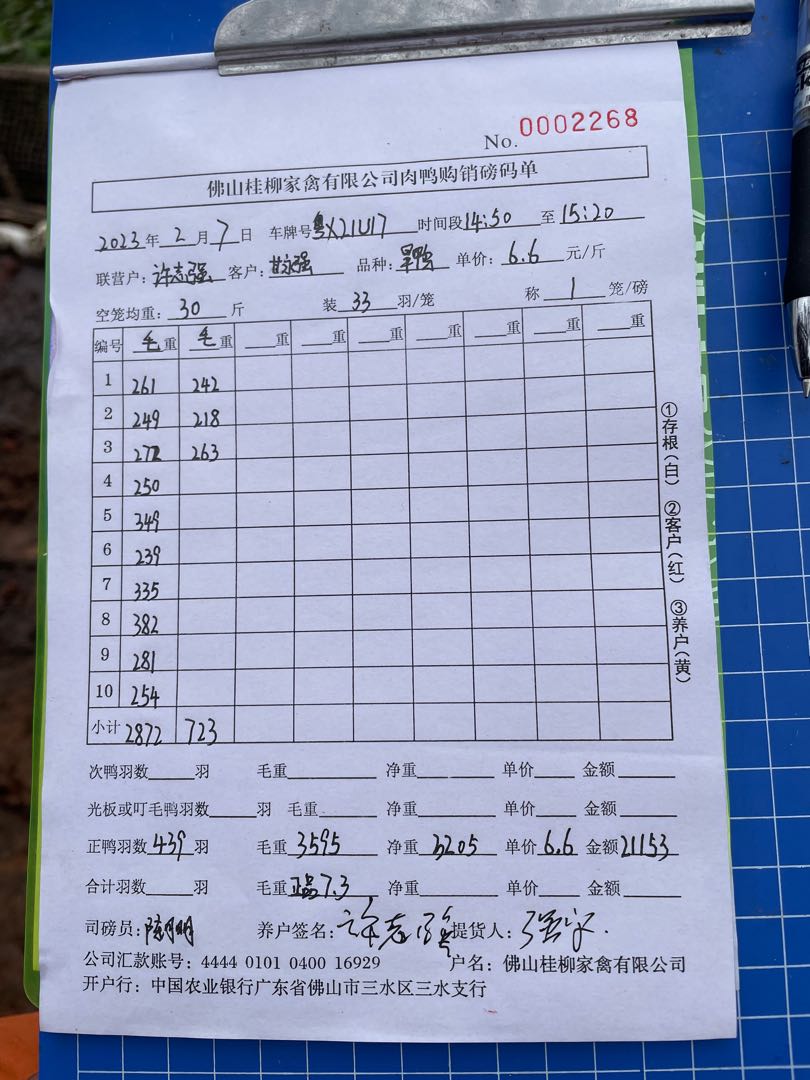 No. 0002268
佛山桂柳家禽有限公司肉鸭购销磅码单
2023年2月7日 车牌号粤X21U17 时间段14:50至15:20
联营户:许志强 客户:甘永强 品种:旱鸭 单价:6.6元/斤
空笼均重:30斤 装33羽/笼 称1笼/磅
编号 毛重 毛重 重 重 重 重 重 重 重
1 261 242
2 249 218
3 272 263
4 250
5 349
6 239
7 335
8 382
9 281
10 254
小计 2872 723
①存根(白) ②客户(红) ③养户(黄)
次鸭羽数 羽 毛重 净重 单价 金额
光板或叮毛鸭羽数 羽 毛重 净重 单价 金额
正鸭羽数439羽 毛重3595 净重3205 单价6.6 金额21153
合计羽数 羽 毛重 7.3 净重 单价 金额
司磅员: 养户签名:许志强 提货人:
公司汇款账号:4444 0101 0400 16929 户名:佛山桂柳家禽有限公司
开户行:中国农业银行广东省佛山市三水区三水支行